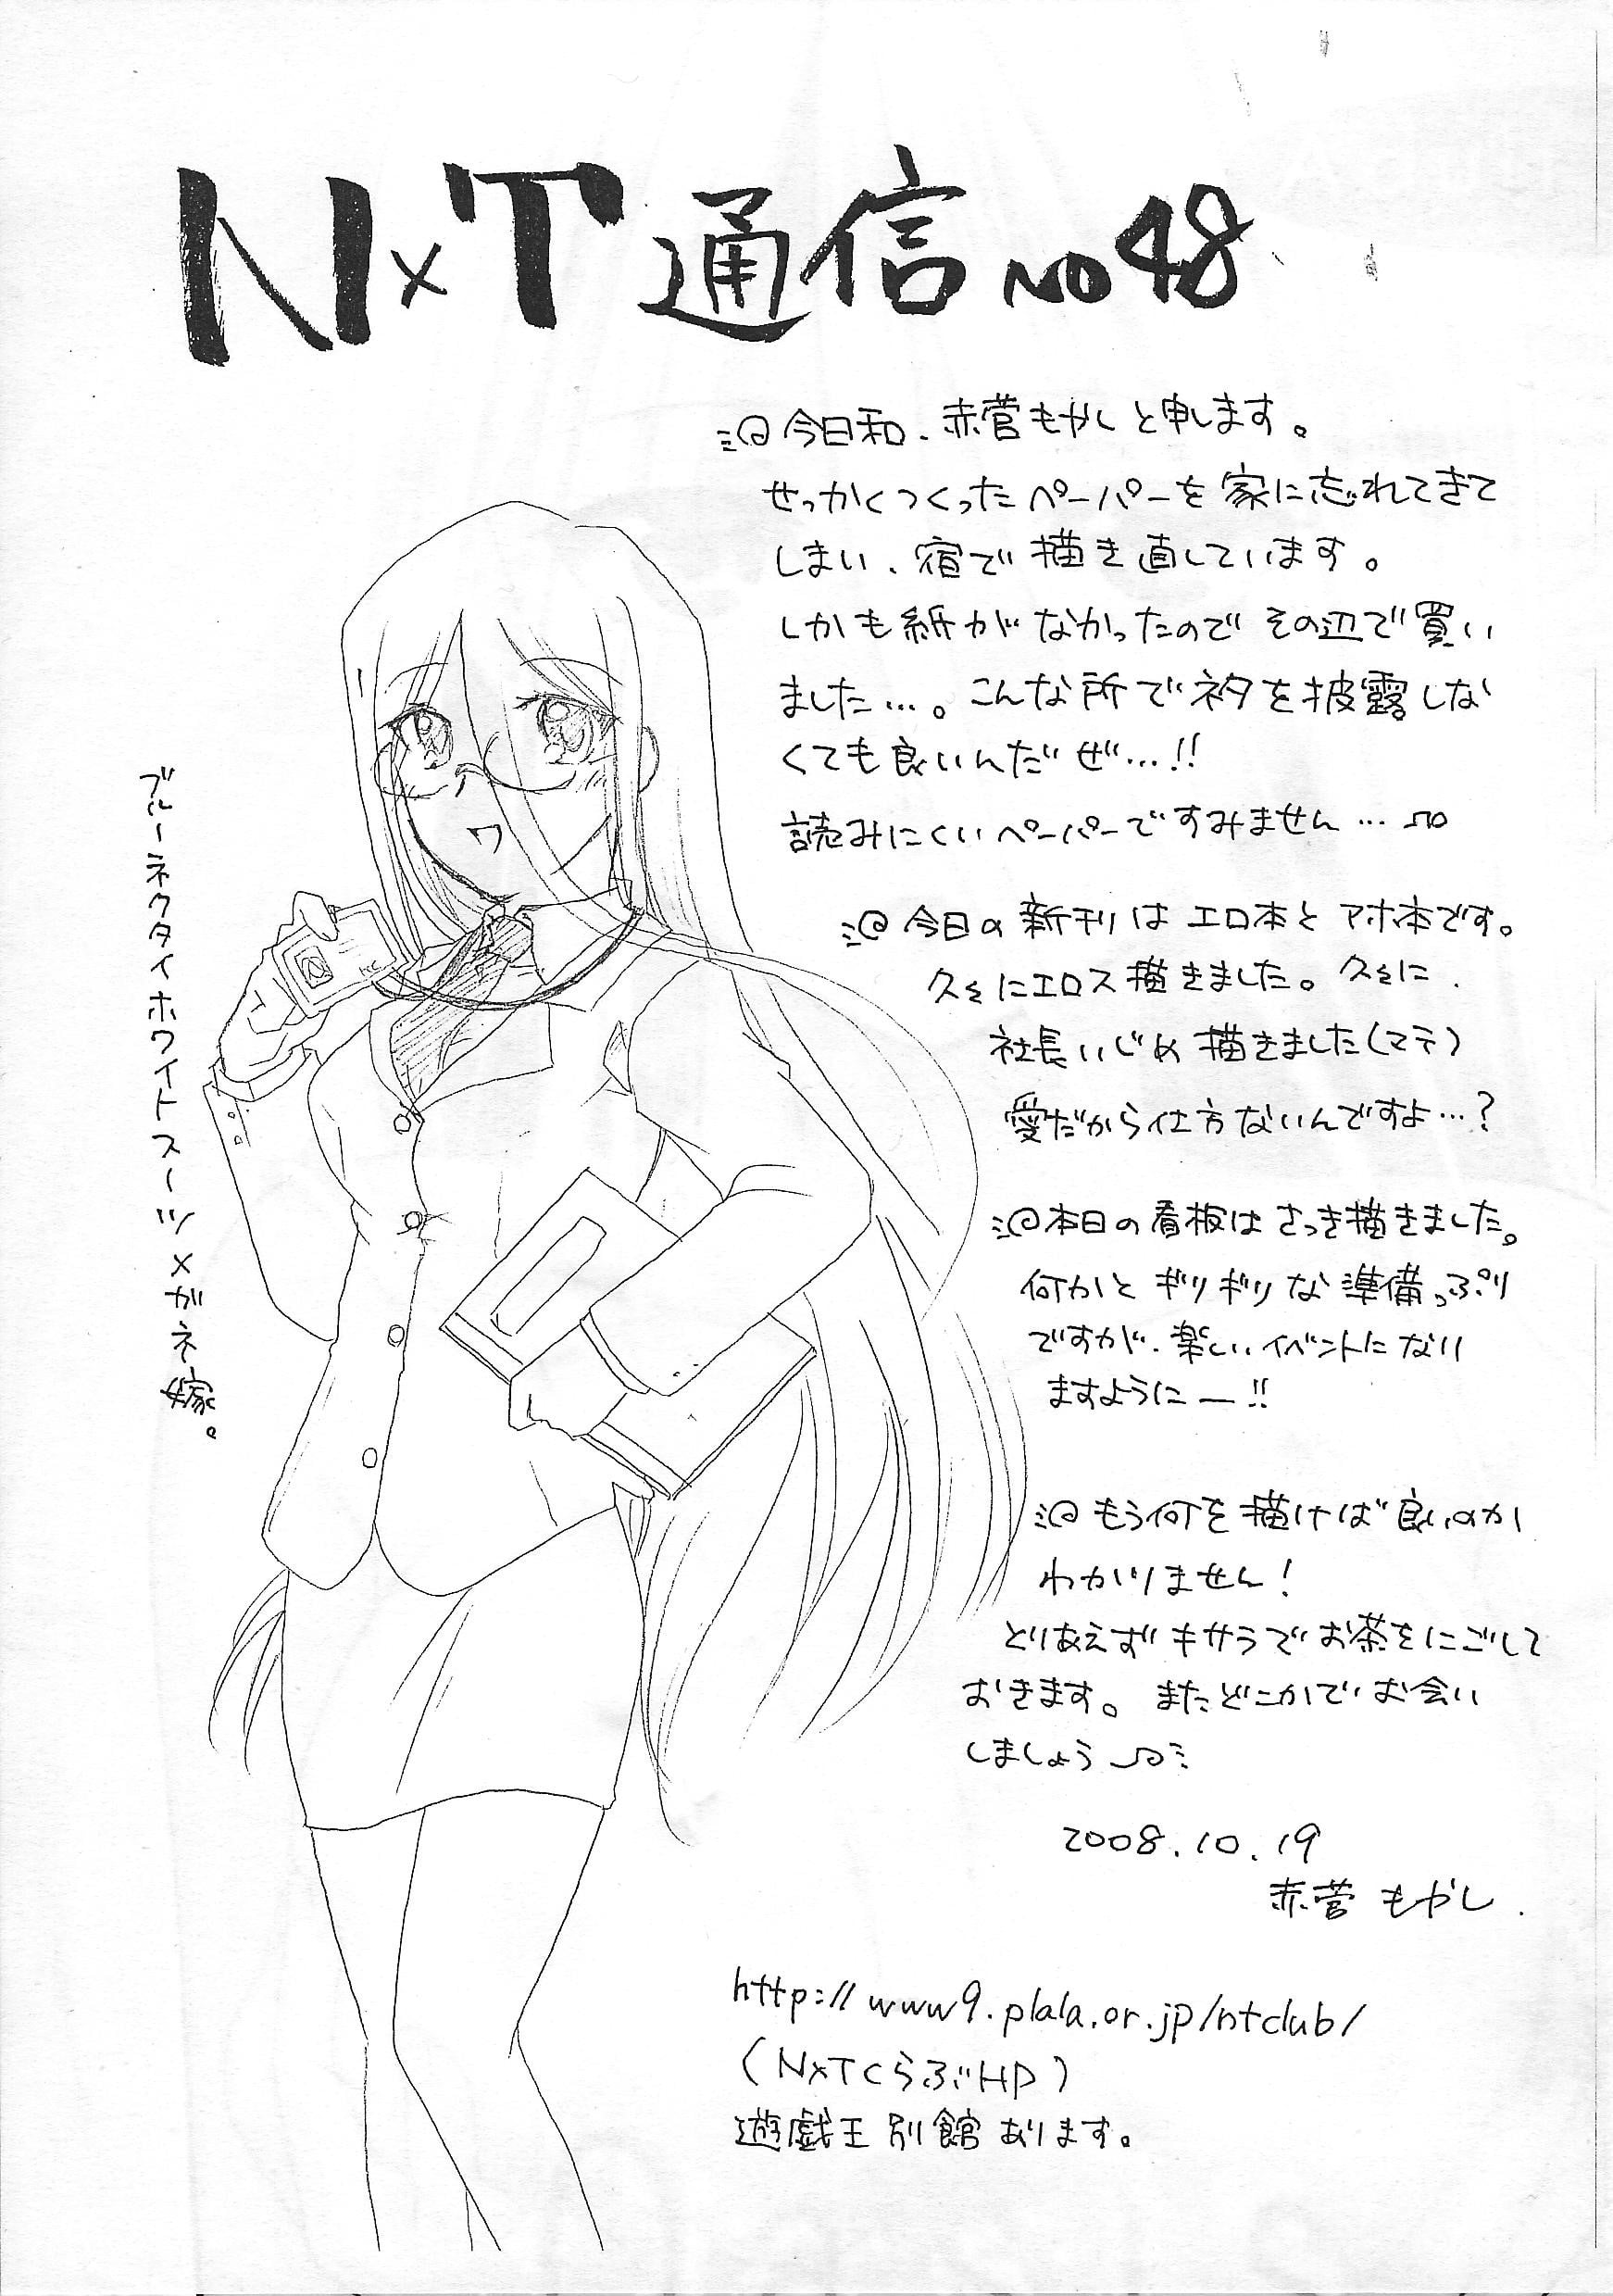 N×T通信 no 48
今日和、赤菅もやしと申します。
せっかくつくったペーパーを家に忘れてきて
しまい、宿で描き直しています。
しかも紙がなかったのでその辺で買い
ました…。こんな所でネタを披露しな
くても良いんだぜ…!!
読みにくいペーパーですみません…
今日の新刊はエロ本とアホ本です。
久々にエロス描きました。久々に、
社長いじめ描きました(マテ)
愛だから仕方ないんですよ…?
本日の看板はさっき描きました。
何かとギリギリな準備っぷり
ですが、楽しいイベントになり
ますようにー!!
もう何を描けば良いのか
わかりません!
とりあえずキサラでお茶をにごして
おきます。またどこかでお会い
しましょう
2008.10.19
赤菅もやし.
http://www9.plala.or.jp/ntclub/
(N×TくらぶHP)
遊戯王別館あります。
ブルーネクタイホワイトスーツメガネ嫁。